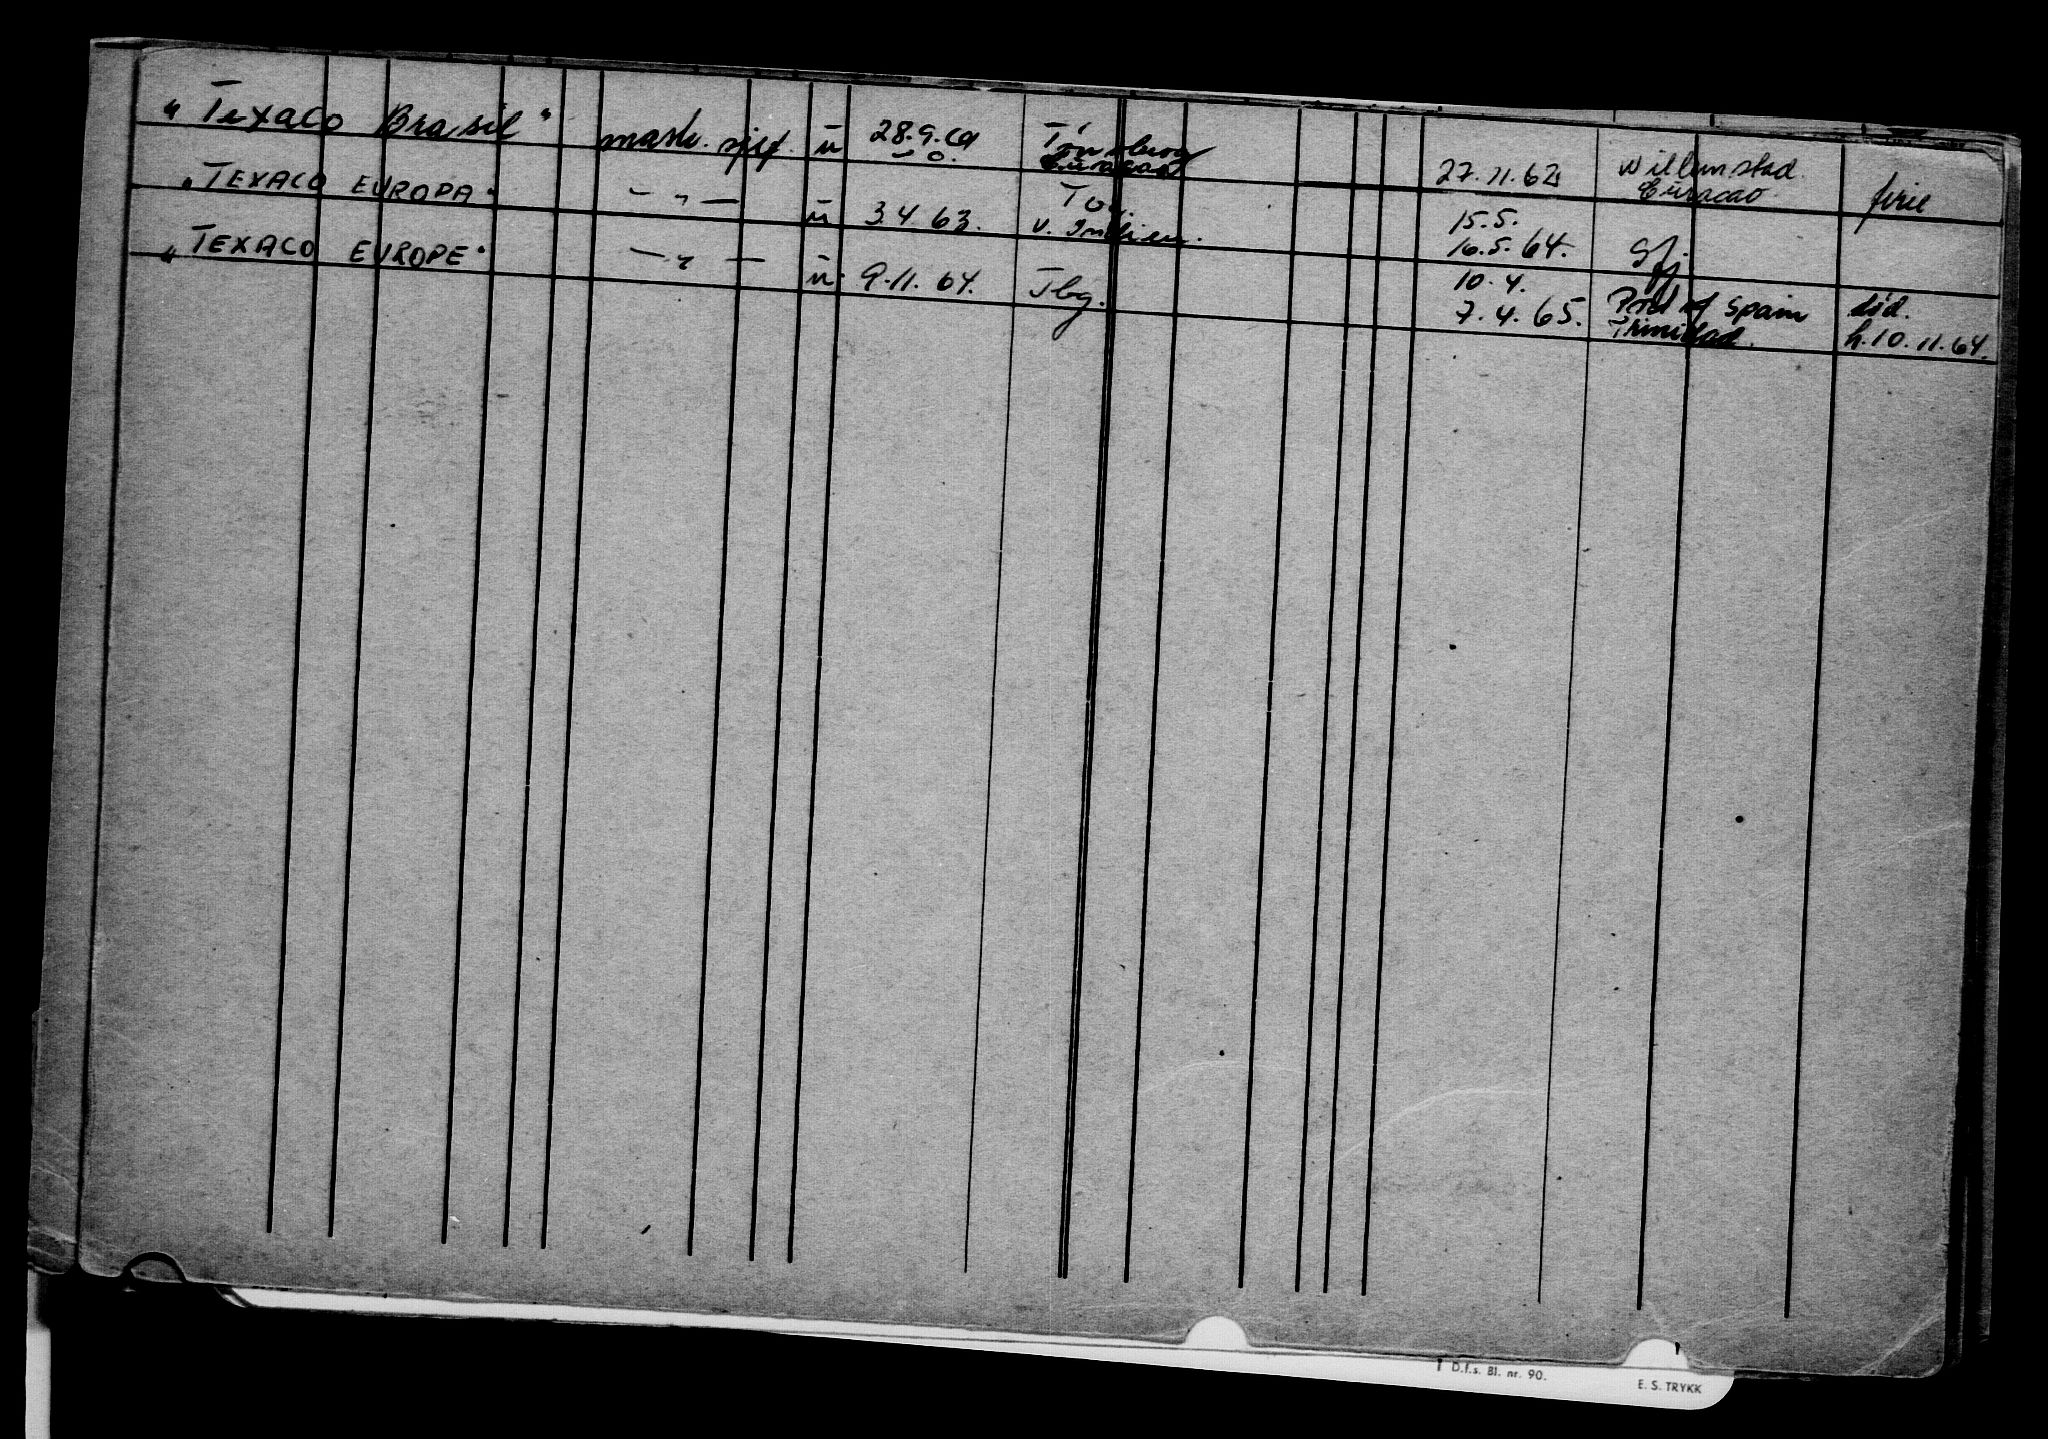 "Texaco Brasil" mask. sjef. u 28.9.61 Tönsberg 27.11.62 Willemstad. ferie
— o. Curacao Curacao.
"TEXACO EUROPA" — " — u 3.4.63. V. Indien. 15.5.
16.5.64. Sfj.
"TEXACO EUROPE" — " — u. 9.11.64. Tbg. 10.4.
7.4.65. Port of Spain død.
Trinidad. h.10.11.64.
D.f.s. Bl. nr. 90. E. S. TRYKK